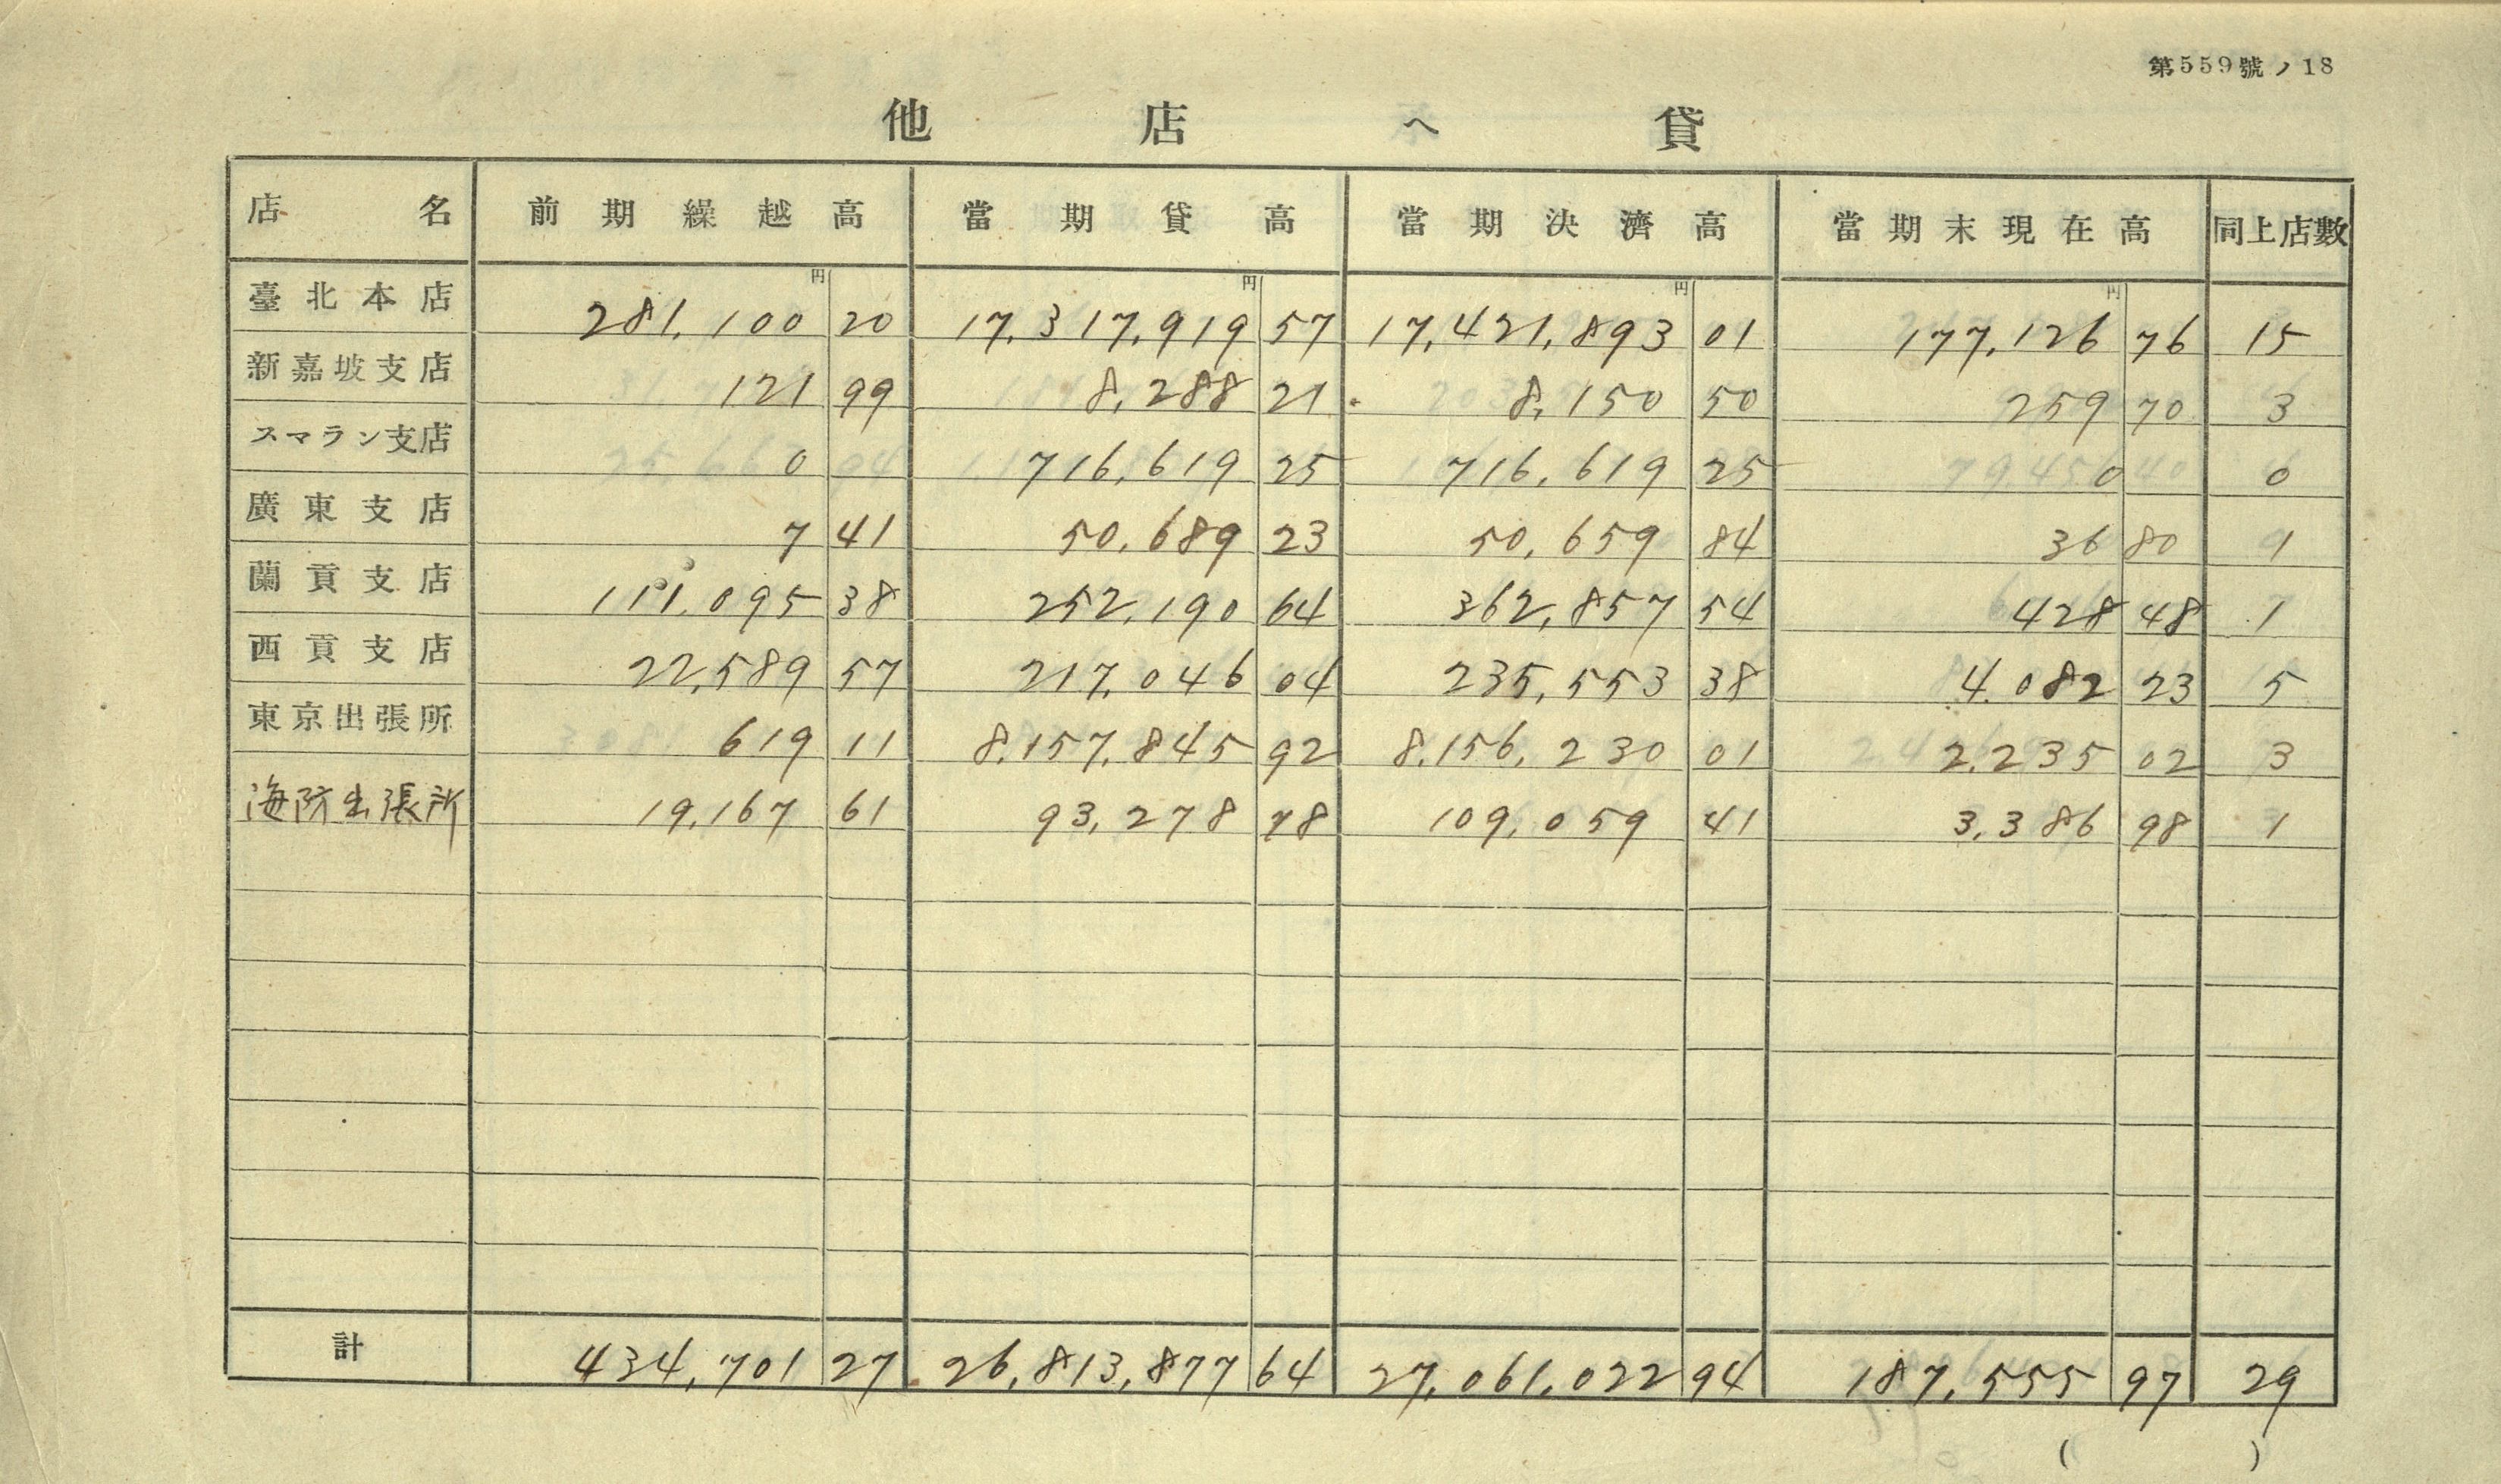 第559號ノ18
他店ヘ貸
店名 前期繰越高 當期貸高 當期決濟高 當期末現在高 同上店數
円 円 円 円
臺北本店 281,100 20 17,317,919 57 17,421,893 01 177,126 76 15
新嘉坡支店 121 99 8,288 21 8,150 50 259 70 3
スマラン支店 0 716,619 25 716,619 25 0 0
廣東支店 7 41 50,689 23 50,659 84 36 80 1
蘭貢支店 111,095 38 252,190 64 362,857 54 428 48 1
西貢支店 22,589 57 217,046 04 235,553 38 4,082 23 5
東京出張所 619 11 8,157,845 92 8,156,230 01 2,235 02 3
海防出張所 19,167 61 93,278 78 109,059 41 3,386 98 1
計 434,701 27 26,813,877 64 27,061,022 94 187,555 97 29
( )